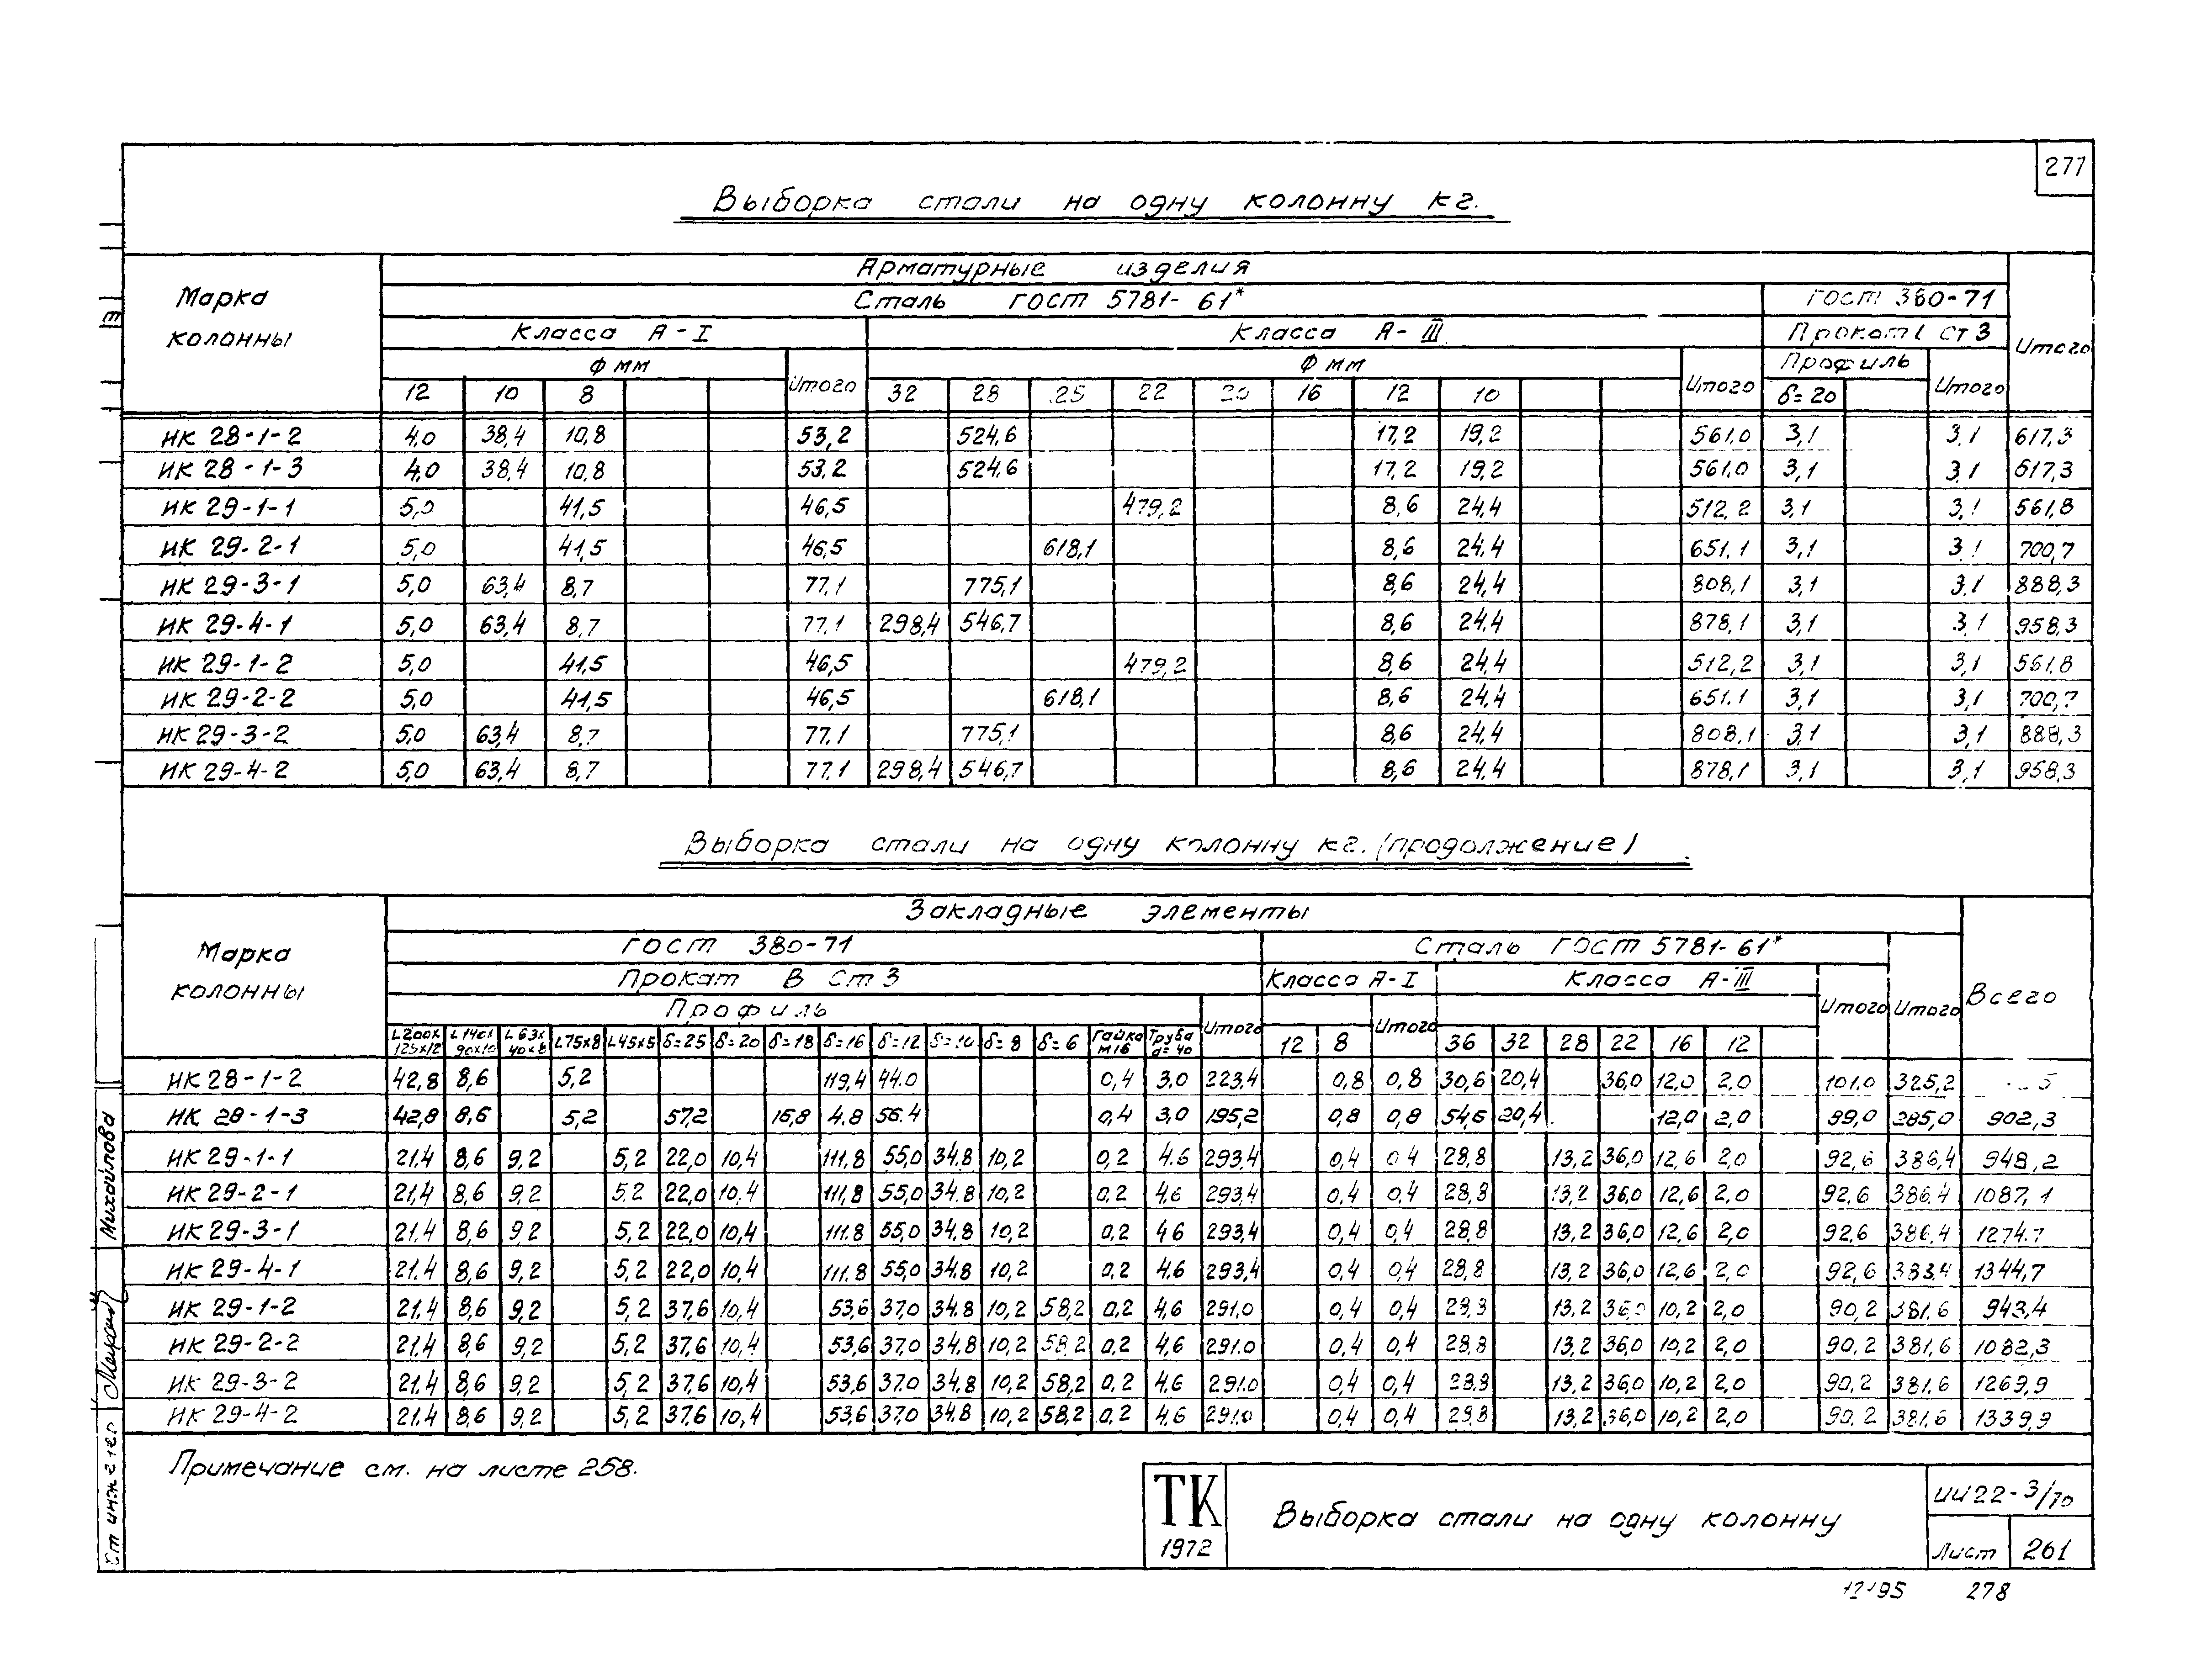 277
Выборка стали на одну колонну кг.
Марка колонны
Арматурные изделия
Итого
Сталь ГОСТ 5781-61*
ГОСТ 380-71
Класса А-I
Класса А-III
Прокат Ст 3
Ф мм
Итого
Ф мм
Итого
Профиль
Итого
12 10 8 32 28 25 22 20 16 12 10 δ=20
ИК 28-1-2 4,0 38,4 10,8 53,2 524,6 17,2 19,2 561,0 3,1 3,1 617,3
ИК 28-1-3 4,0 38,4 10,8 53,2 524,6 17,2 19,2 561,0 3,1 3,1 617,3
ИК 29-1-1 5,0 41,5 46,5 479,2 8,6 24,4 512,2 3,1 3,1 561,8
ИК 29-2-1 5,0 41,5 46,5 618,1 8,6 24,4 651,1 3,1 3,1 700,7
ИК 29-3-1 5,0 63,4 8,7 77,1 775,1 8,6 24,4 808,1 3,1 3,1 888,3
ИК 29-4-1 5,0 63,4 8,7 77,1 298,4 546,7 8,6 24,4 878,1 3,1 3,1 958,3
ИК 29-1-2 5,0 41,5 46,5 479,2 8,6 24,4 512,2 3,1 3,1 561,8
ИК 29-2-2 5,0 41,5 46,5 618,1 8,6 24,4 651,1 3,1 3,1 700,7
ИК 29-3-2 5,0 63,4 8,7 77,1 775,1 8,6 24,4 808,1 3,1 3,1 888,3
ИК 29-4-2 5,0 63,4 8,7 77,1 298,4 546,7 8,6 24,4 878,1 3,1 3,1 958,3
Выборка стали на одну колонну кг. (продолжение)
Марка колонны
Закладные элементы
Всего
ГОСТ 380-71
Сталь ГОСТ 5781-61*
Итого
Прокат В Ст 3
Класса А-I
Класса А-III
Итого
Профиль
Итого
Итого
L200х125х12 L140х90х10 L63х40х8 L75х8 L45х5 δ=25 δ=20 δ=18 δ=16 δ=12 δ=10 δ=8 δ=6 Гайка М16 Труба d=40 12 8 36 32 28 22 16 12
ИК 28-1-2 42,8 8,6 5,2 119,4 44,0 0,4 3,0 223,4 0,8 0,8 30,6 20,4 36,0 12,0 2,0 101,0 325,2
ИК 28-1-3 42,8 8,6 5,2 57,2 16,8 4,8 56,4 0,4 3,0 195,2 0,8 0,8 54,6 20,4 12,0 2,0 89,0 285,0 902,3
ИК 29-1-1 21,4 8,6 9,2 5,2 22,0 10,4 111,8 55,0 34,8 10,2 0,2 4,6 293,4 0,4 0,4 28,8 13,2 36,0 12,6 2,0 92,6 386,4 948,2
ИК 29-2-1 21,4 8,6 9,2 5,2 22,0 10,4 111,8 55,0 34,8 10,2 0,2 4,6 293,4 0,4 0,4 28,8 13,2 36,0 12,6 2,0 92,6 386,4 1087,1
ИК 29-3-1 21,4 8,6 9,2 5,2 22,0 10,4 111,8 55,0 34,8 10,2 0,2 4,6 293,4 0,4 0,4 28,8 13,2 36,0 12,6 2,0 92,6 386,4 1274,7
ИК 29-4-1 21,4 8,6 9,2 5,2 22,0 10,4 111,8 55,0 34,8 10,2 0,2 4,6 293,4 0,4 0,4 28,8 13,2 36,0 12,6 2,0 92,6 1344,7
ИК 29-1-2 21,4 8,6 9,2 5,2 37,6 10,4 53,6 37,0 34,8 10,2 58,2 0,2 4,6 291,0 0,4 0,4 28,8 13,2 36,0 10,2 2,0 90,2 381,6 943,4
ИК 29-2-2 21,4 8,6 9,2 5,2 37,6 10,4 53,6 37,0 34,8 10,2 58,2 0,2 4,6 291,0 0,4 0,4 28,8 13,2 36,0 10,2 2,0 90,2 381,6 1082,3
ИК 29-3-2 21,4 8,6 9,2 5,2 37,6 10,4 53,6 37,0 34,8 10,2 58,2 0,2 4,6 291,0 0,4 0,4 28,8 13,2 36,0 10,2 2,0 90,2 381,6 1269,9
ИК 29-4-2 21,4 8,6 9,2 5,2 37,6 10,4 53,6 37,0 34,8 10,2 58,2 0,2 4,6 291,0 0,4 0,4 28,8 13,2 36,0 10,2 2,0 90,2 381,6 1339,9
Примечание см. на листе 258.
ТК
1972
Выборка стали на одну колонну
ИИ22-3/70
Лист 261
278
Ст инженер
Михайлова